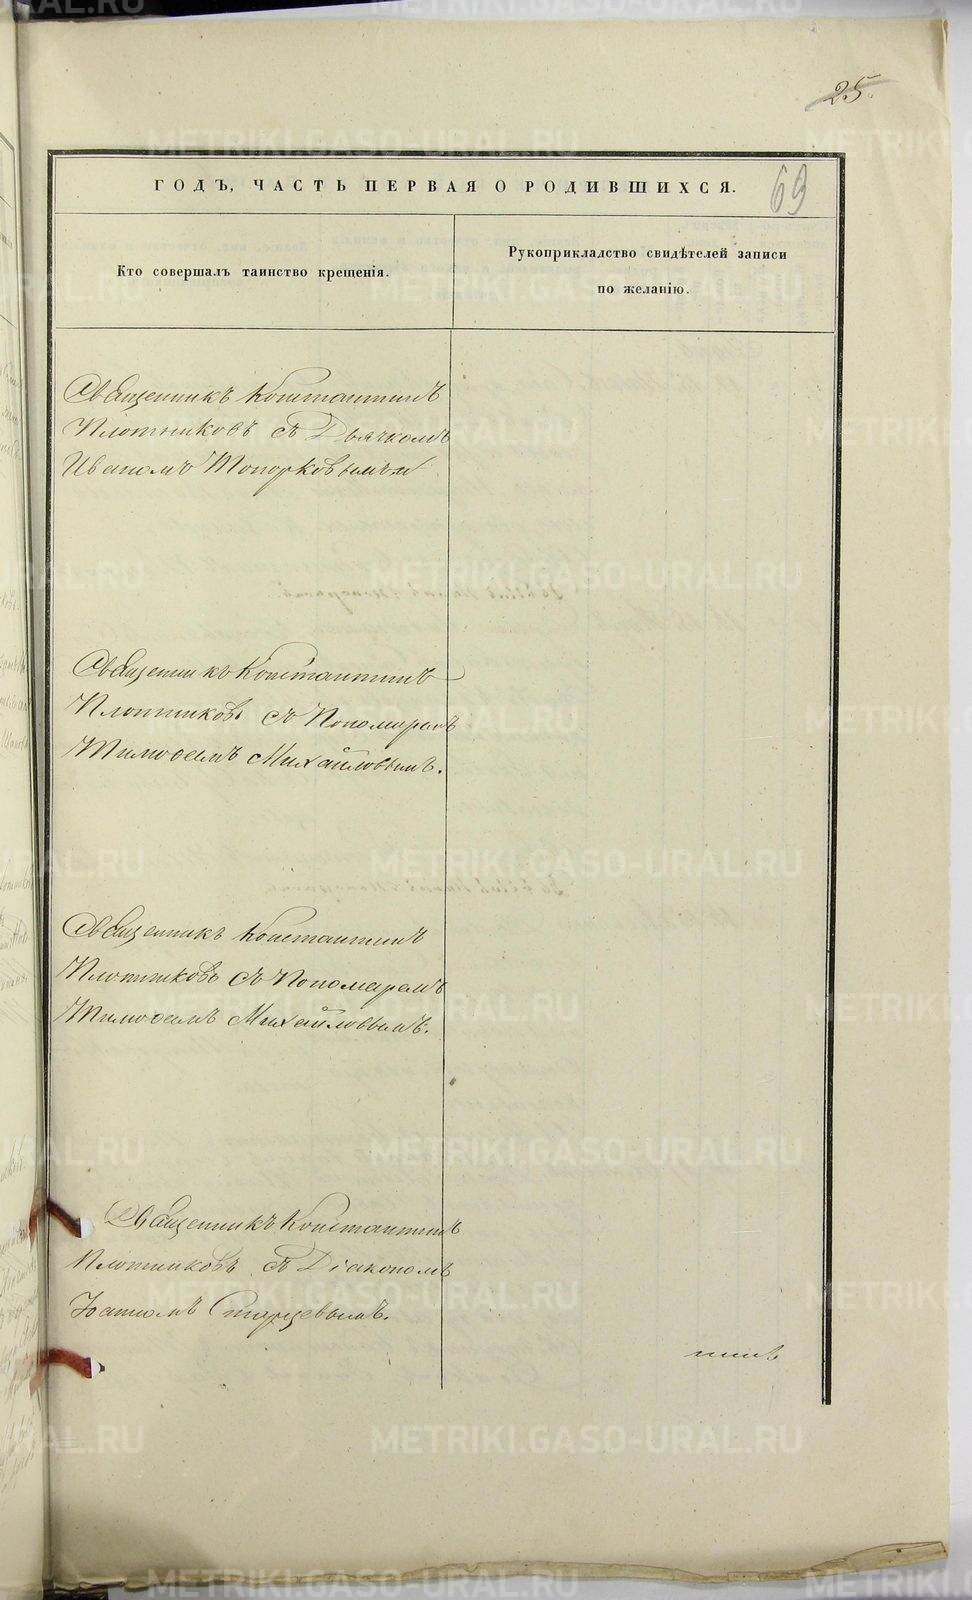 25.
ГОДЪ, ЧАСТЬ ПЕРВАЯ О РОДИВШИХСЯ.
69
Кто совершалъ таинство крещенія.
Рукоприкладство свидѣтелей записи
по желанію.
Священникъ Константинъ
Плотниковъ съ Дьячкомъ
Иваномъ Топорковымъ
Священникъ Константинъ
Плотниковъ съ Пономаремъ
Тимоѳеемъ Михайловымъ.
Священникъ Константинъ
Плотниковъ съ Пономаремъ
Тимоѳеемъ Михайловымъ.
Священникъ Константинъ
Плотниковъ съ Діакономъ
Іоанномъ Старцевымъ.
METRIKI.GASO-URAL.RU